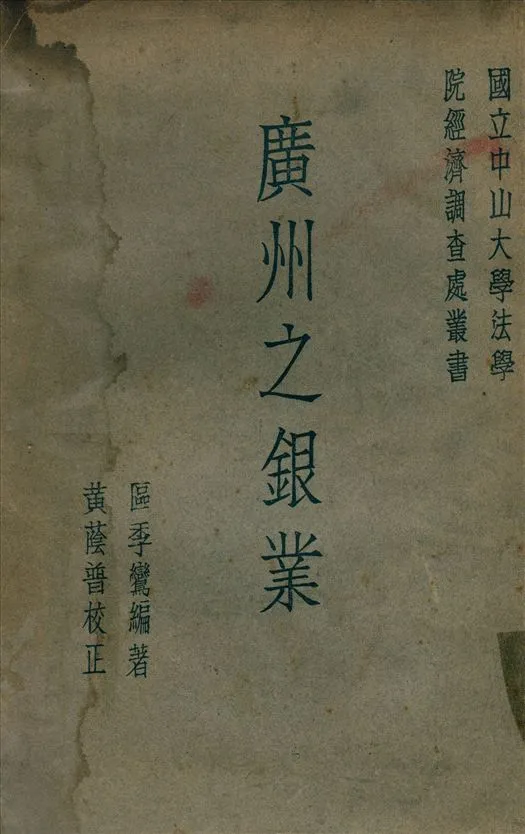 國立中山大學法學
院經濟調查處叢書
廣州之銀業
區季鸞編著
黃蔭普校正